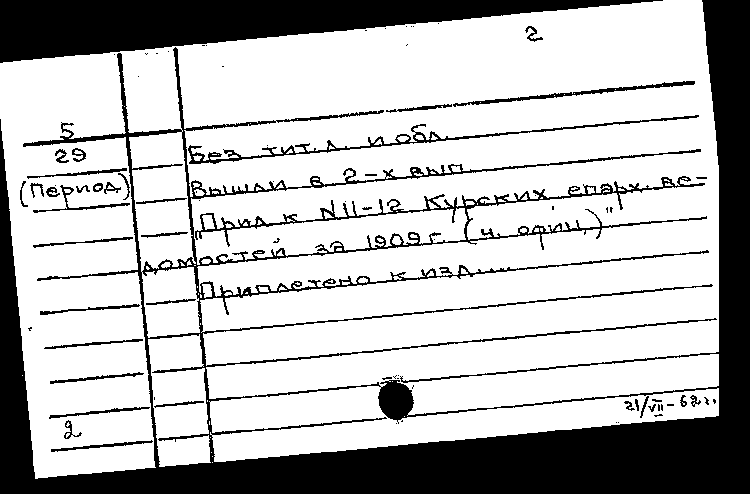 2
5
29
(Период)
Без тит. л. и обл.
Вышли в 2-х вып.
"Прил к N 11-12 Курских епарх. ве-
домостей за 1909 г. (ч. офиц.)"
Приплетено к изд....
2
21/VII-62 г.